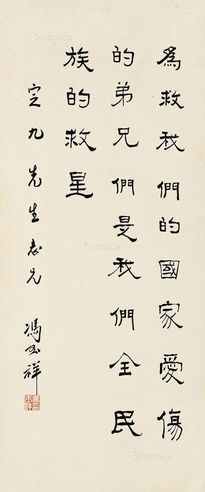 為救我們的國家愛傷
的弟兄們是我們全民
族的救星
定九先生志兄
馮玉祥